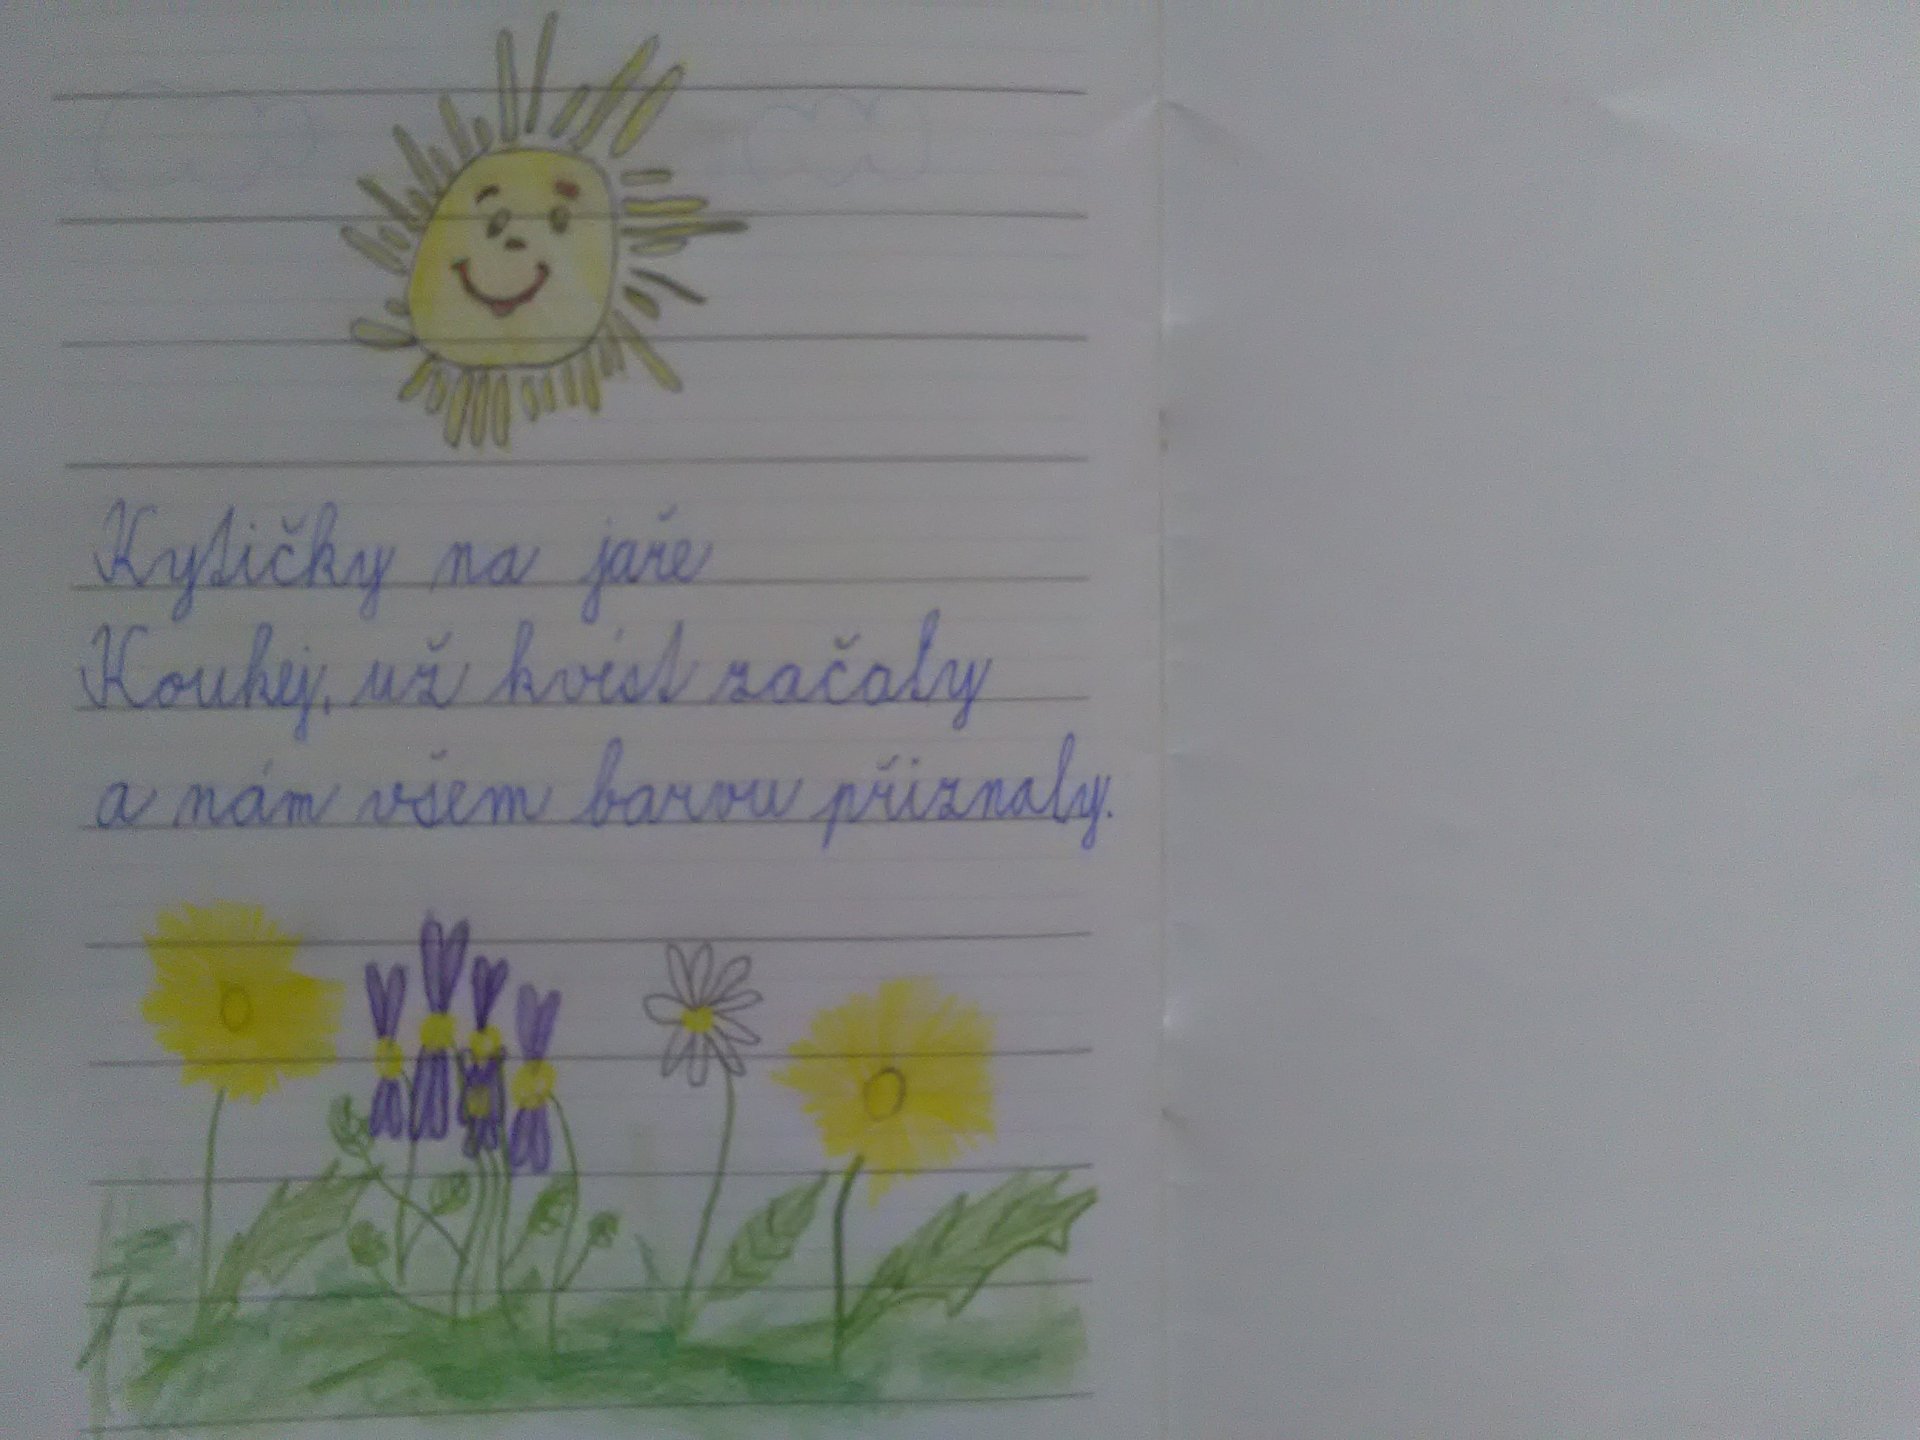 Kytičky na jaře
Koukej, už kvést začaly
a nám všem barvu přiznaly.